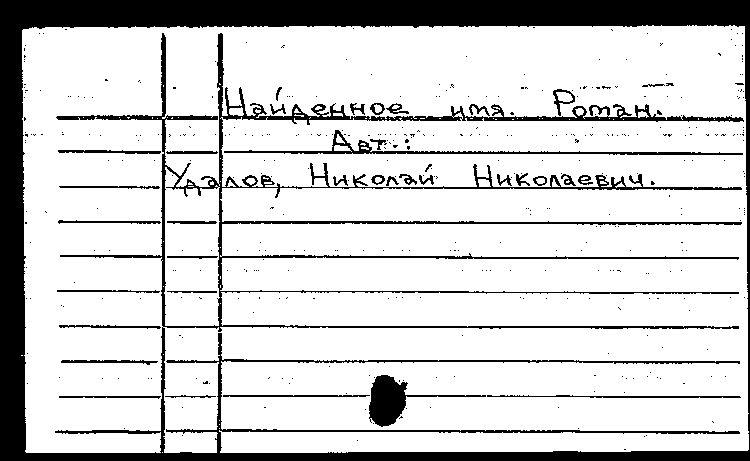 Найденное имя. Роман.
Авт.:
Удалов, Николай Николаевич.